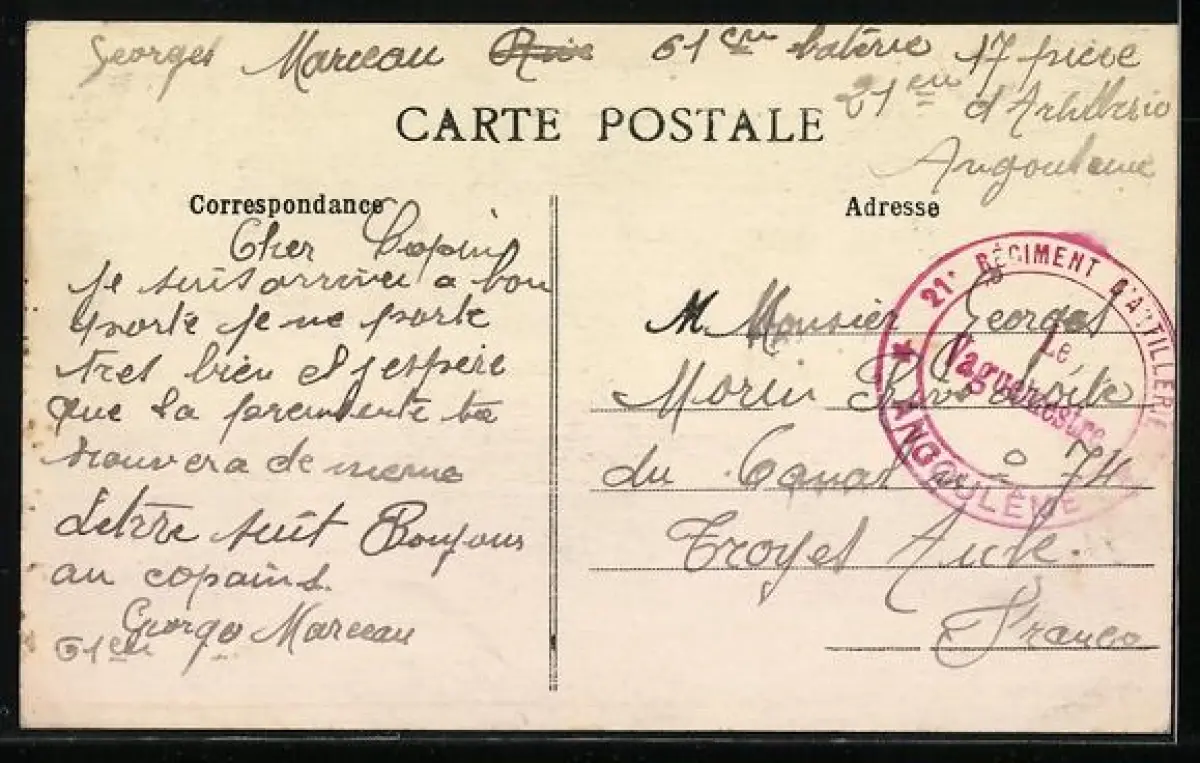 Georges Marceau 61em batérie 17 pièce
21em d'Artillerie
Angouleme
CARTE POSTALE
Correspondance
Cher Copain
Je suis arriver a bon
porte je me porte
tres bien et j'espère
que la presente te
trouvera de meme
Lettre suit Bonjour
au copains.
George Marceau
61em
Adresse
M. Monsier Georges
Morin Rive droite
du Canal no 74
Troyes Aube.
France
21e RÉGIMENT D'ARTILLERIE
Le
Vaguemestre
★ ANGOULÊME